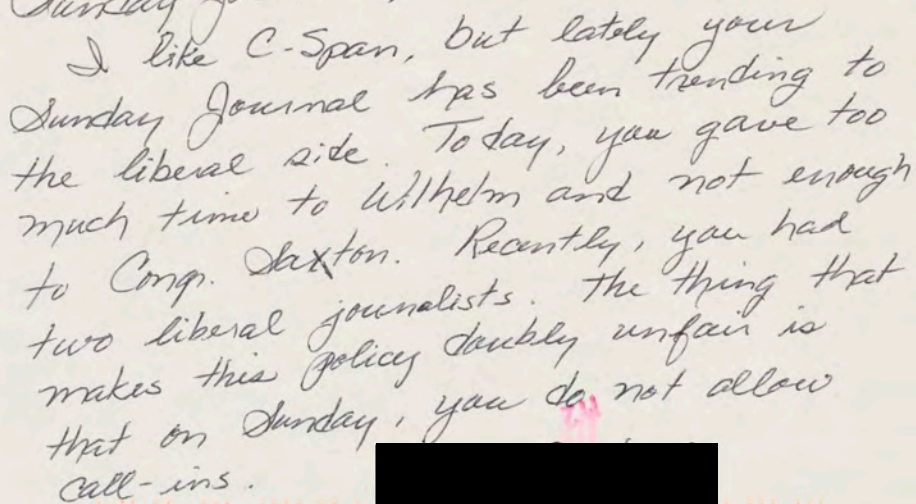 Sunday Jou
I like C-Span, but lately your
Sunday Journal has been trending to
the liberal side. Today, you gave too
much time to Wilhelm and not enough
to Cong. Saxton. Recently, you had
two liberal journalists. The thing that
makes this policy doubly unfair is
that on Sunday, you do not allow
call-ins.